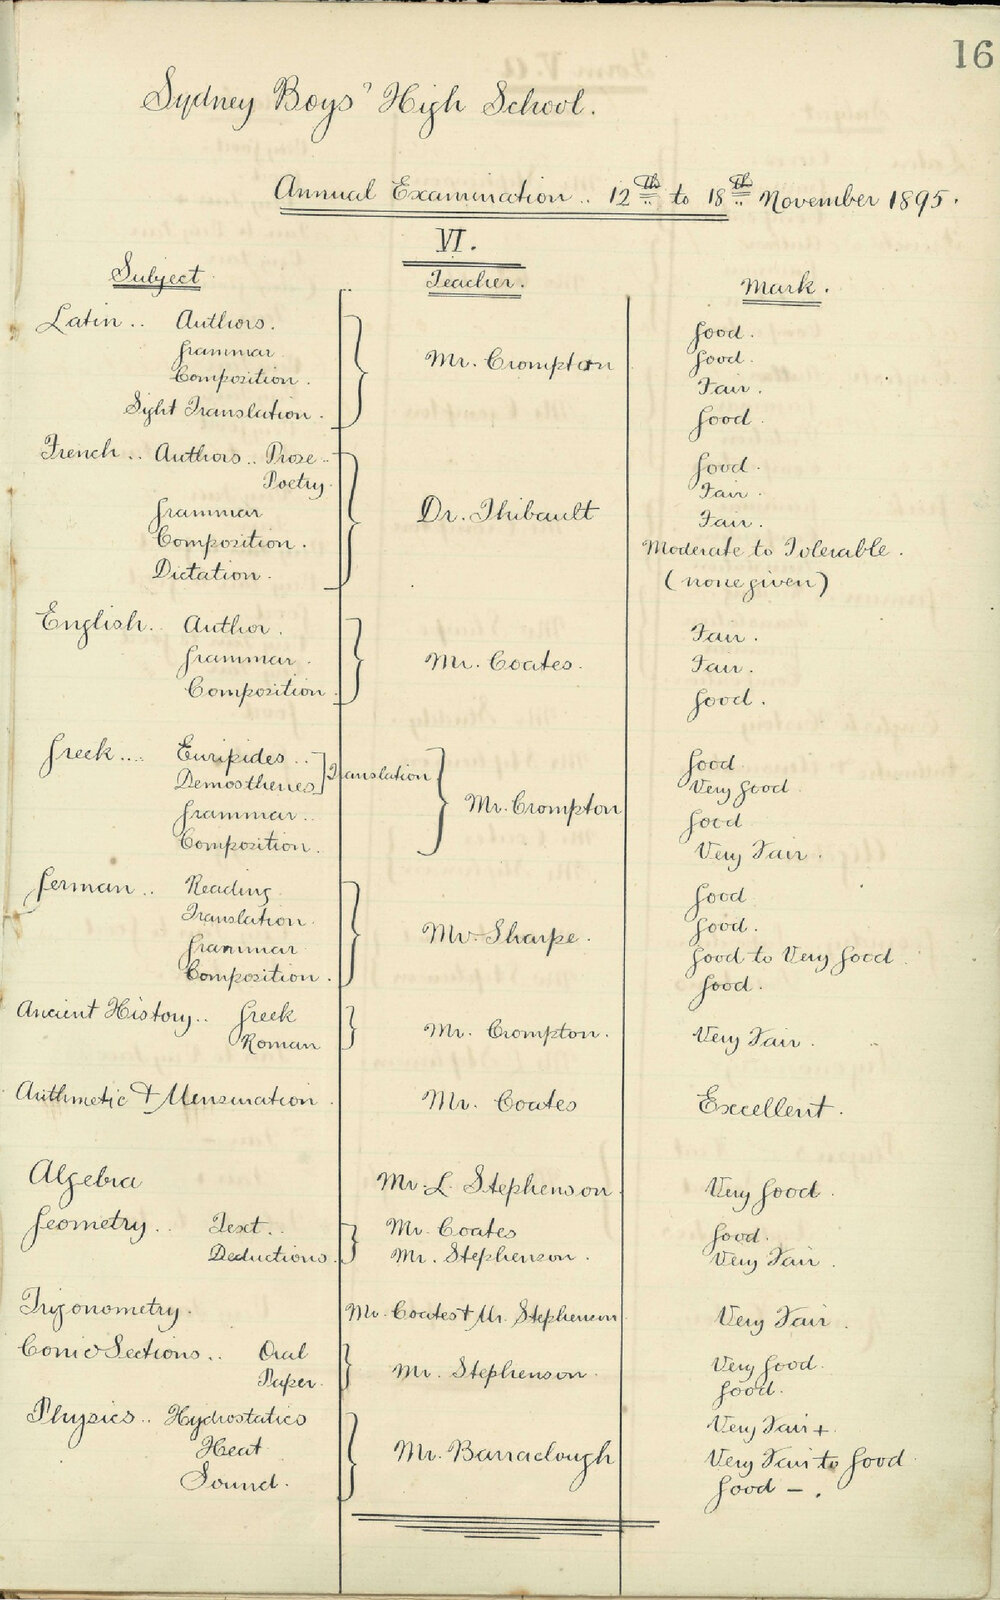 16
Sydney Boys' High School.
Annual Examination .. 12th to 18th November 1895.
VI.
Subject Teacher. Mark.
Latin .. Authors. Good.
Grammar Mr. Crompton Good.
Composition. Fair.
Sight Translation. Good
French .. Authors .. Prose .. Good.
Poetry. Fair.
Grammar Dr. Thibault Fair.
Composition. Moderate to Tolerable.
Dictation. (none given)
English .. Author. Fair.
Grammar. Mr. Coates. Fair.
Composition. Good.
Greek .... Euripides .. Translation Good
Demosthenes Very Good
Grammar .. Mr. Crompton Good
Composition. Very Fair.
German .. Reading. Good
Translation. Mr. Sharpe. Good.
Grammar Good to Very Good
Composition. Good.
Ancient History .. Greek Mr. Crompton. Very Fair.
Roman
Arithmetic & Mensuration. Mr. Coates Excellent.
Algebra Mr. L. Stephenson. Very Good.
Geometry .. Text .. Mr. Coates Good.
Deductions. Mr. Stephenson. Very Fair.
Trigonometry. Mr. Coates & Mr. Stephenson Very Fair.
Conic Sections .. Oral Mr. Stephenson. Very Good.
Paper. Good.
Physics .. Hydrostatics Very Fair +
Heat Mr. Barraclough Very Fair to Good
Sound. Good - .